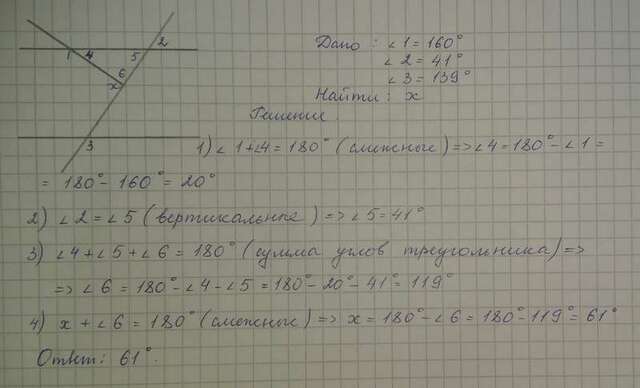 1 4 5 2
6
x
3
Дано: ∠1 = 160°
∠2 = 41°
∠3 = 139°
Найти: x
Решение
1) ∠1+∠4 = 180° (смежные) => ∠4 = 180° - ∠1 =
= 180° - 160° = 20°
2) ∠2 = ∠5 (вертикальные) => ∠5 = 41°
3) ∠4 + ∠5 + ∠6 = 180° (сумма углов треугольника) =>
=> ∠6 = 180° - ∠4 - ∠5 = 180° - 20° - 41° = 119°
4) x + ∠6 = 180° (смежные) => x = 180° - ∠6 = 180° - 119° = 61°
Ответ: 61°.